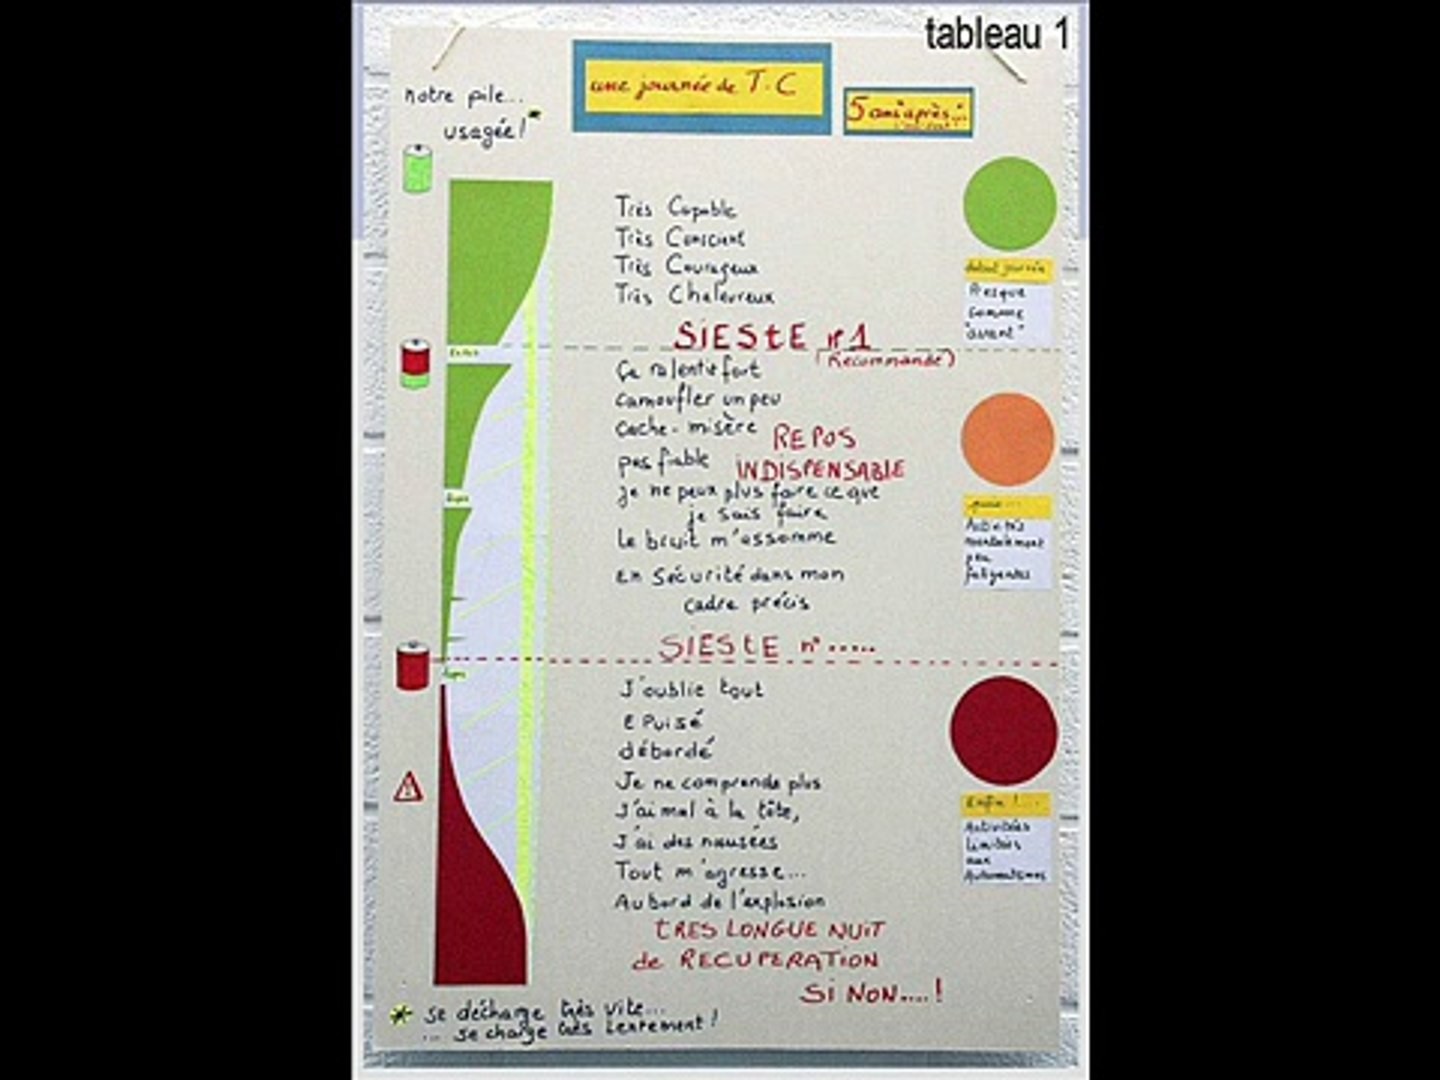 tableau 1
une journée de T.C
5 ans "après"...
notre pile...
usagée! *
Très Capable
Très Conscient
Très Courageux
Très Chaleureux
début journée
Presque
comme
"avant"
SIESTE n°1
(Recommandé)
Ça ralentit fort
camoufler un peu
cache-misère
REPOS
INDISPENSABLE
pas fiable
je ne peux plus faire ce que
je sais faire
Le bruit m'assomme
En Sécurité dans mon
cadre précis
Activités
mentalement
peu
fatigantes
SIESTE n°.....
Repos
J'oublie tout
EPuisé
débordé
Je ne comprends plus
J'ai mal à la tête,
J'ai des nausées
Tout m'agresse...
Au bord de l'explosion
Enfin !...
Activités
limités
aux
Automatismes
TRES LONGUE NUIT
de RECUPERATION
SI NON....!
* se décharge très vite...
... se charge très lentement!